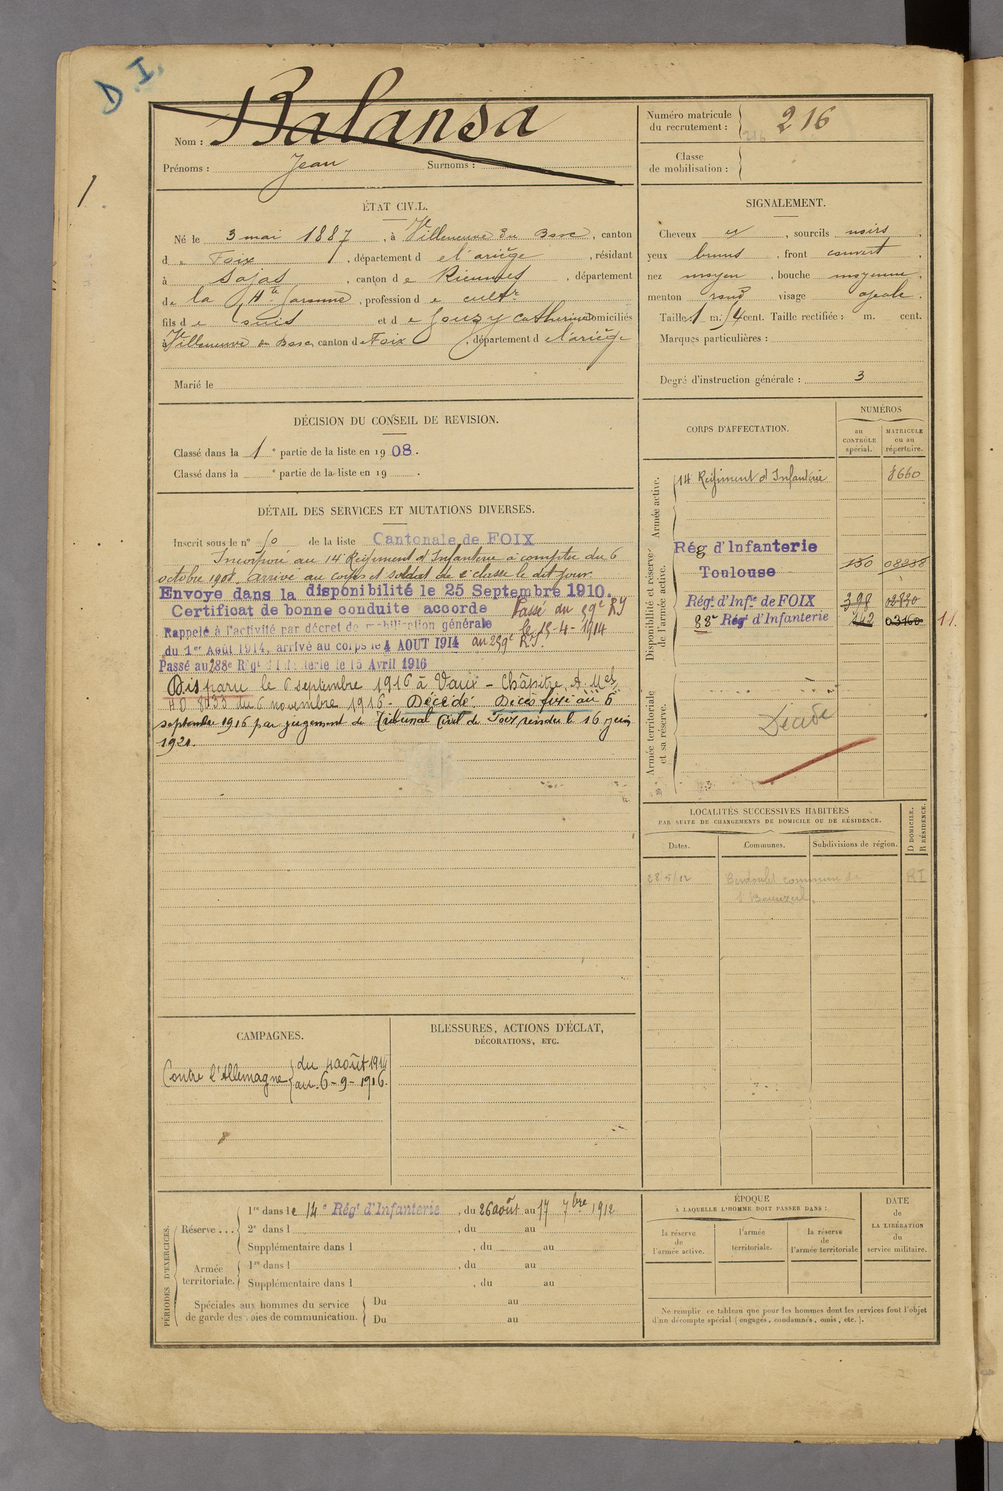 D I.
1.
Nom : Balansa
Prénoms : Jean Surnoms :
Numéro matricule du recrutement : 216
216
Classe de mobilisation :
ÉTAT CIVIL.
Né le 3 mai 1887, à Villeneuve du Bosc, canton
d e Foix, département d e l'ariège, résidant
à Sajas, canton d e Rieumes, département
de la Hte Garonne, profession d e cultr
fils d e Louis et d e Gouzy Catherine domiciliés
à Villeneuve du Bosc, canton d e Foix, département d e l'ariège
Marié le
SIGNALEMENT.
Cheveux et, sourcils noirs,
yeux bruns, front couvert,
nez moyen, bouche moyenne,
menton rond visage ovale.
Taille 1 m. 54 cent. Taille rectifiée : m. cent.
Marques particulières :
Degré d'instruction générale : 3
DÉCISION DU CONSEIL DE REVISION.
Classé dans la 1 e partie de la liste en 1908.
Classé dans la e partie de la liste en 19 .
CORPS D'AFFECTATION.
NUMÉROS
au CONTRÔLE spécial.
MATRICULE ou au répertoire.
Armée active.
14 Régiment d'Infanterie 8660
Disponibilité et réserve de l'armée active.
Rég d'Infanterie
Toulouse 150
Régt. d'Infie de FOIX 398
88e Régt d'Infanterie 242 03160
11.
Armée territoriale et sa réserve.
Décédé
DÉTAIL DES SERVICES ET MUTATIONS DIVERSES.
Inscrit sous le n° 50 de la liste Cantonale de FOIX
Incorporé au 14e Régiment d'Infanterie à compter du 6
octobre 1908. Arrivé au corps et soldat de 2e classe le dit jour.
Envoyé dans la disponibilité le 25 Septembre 1910.
Certificat de bonne conduite accordé Passé au 59e RI
le 15-4-1914
Rappelé à l'activité par décret de mobilisation générale
du 1er Août 1914, arrivé au corps le 4 AOUT 1914 au 259e RI.
Passé au 288e Régt d'Infanterie le 15 Avril 1916
Disparu le 6 septembre 1916 à Vaux-Châpitre, A. Mel
AD 8133 du 6 novembre 1916. Décédé. Décès fixé au 6
septembre 1916 par jugement du Tribunal Civil de Foix rendu le 16 juin
1921.
LOCALITÉS SUCCESSIVES HABITÉES
PAR SUITE DE CHANGEMENTS DE DOMICILE OU DE RÉSIDENCE.
Dates. Communes. Subdivisions de région. D DOMICILE. R RÉSIDENCE.
28-5/12 commune de RI
CAMPAGNES.
Contre l'Allemagne du 4 août 1914
au 6-9-1916.
BLESSURES, ACTIONS D'ÉCLAT,
DÉCORATIONS, ETC.
PÉRIODES D'EXERCICES.
Réserve...
1re dans le 14e Régt d'Infanterie, du 26 août au 17 7bre 1912
2e dans l , du au
Supplémentaire dans l , du au
Armée territoriale.
1re dans l , du au
Supplémentaire dans l , du au
Spéciales aux hommes du service de garde des voies de communication.
Du au
Du au
ÉPOQUE
À LAQUELLE L'HOMME DOIT PASSER DANS :
la réserve de l'armée active.
l'armée territoriale.
la réserve de l'armée territoriale
DATE de LA LIBÉRATION du service militaire.
Ne remplir ce tableau que pour les hommes dont les services font l'objet
d'un décompte spécial (engagés, condamnés, omis, etc.).